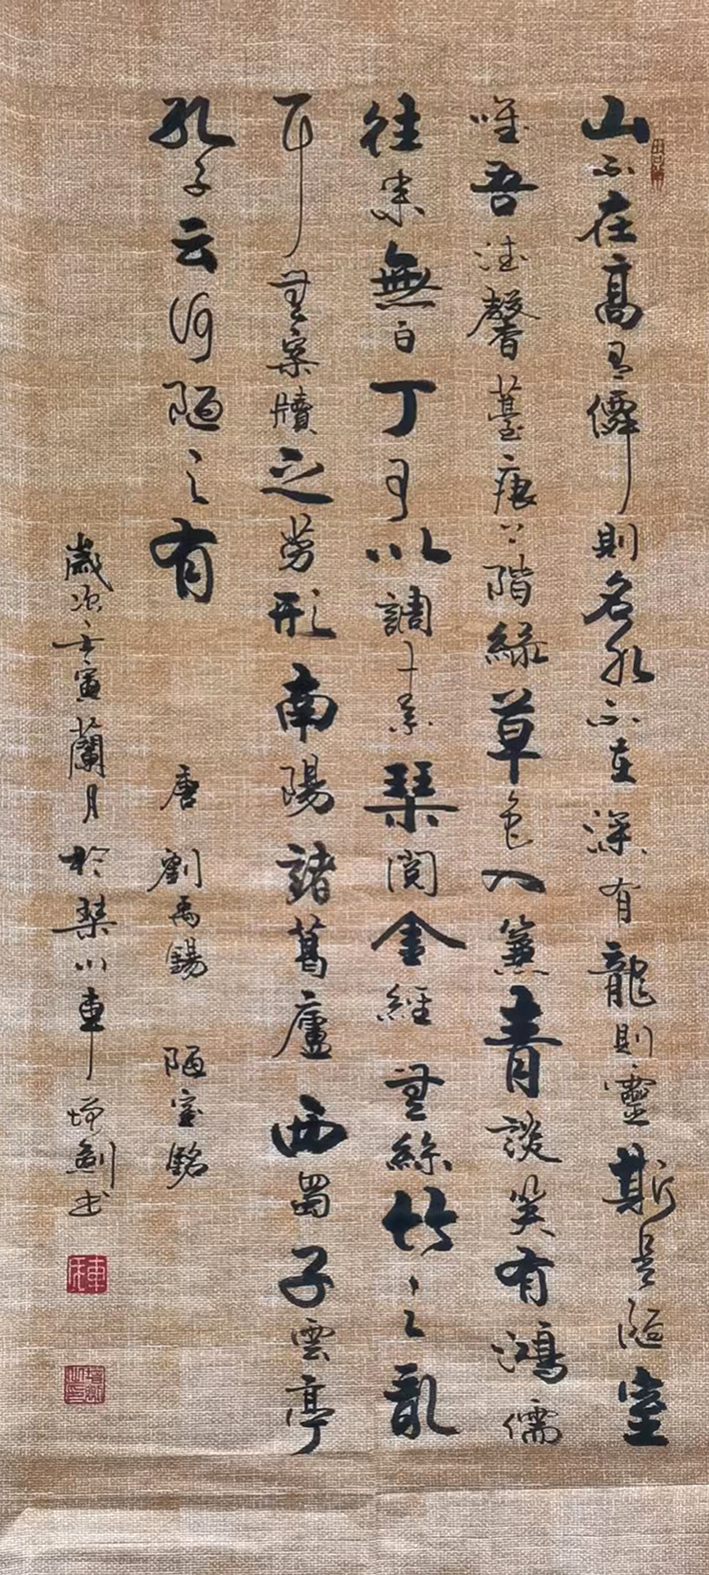 山不在高有僊則名水不在深有龍則靈斯是陋室
唯吾德馨薹痕上階綠草色入簾青談笑有鴻儒
往來無白丁可以調素琹閱金經無絲竹之亂
耳無案牘之勞形南陽諸葛廬西蜀子雲亭
孔子云何陋之有
唐 劉禹錫 陋室銘
歲次壬寅蘭月於琹川車增劍书